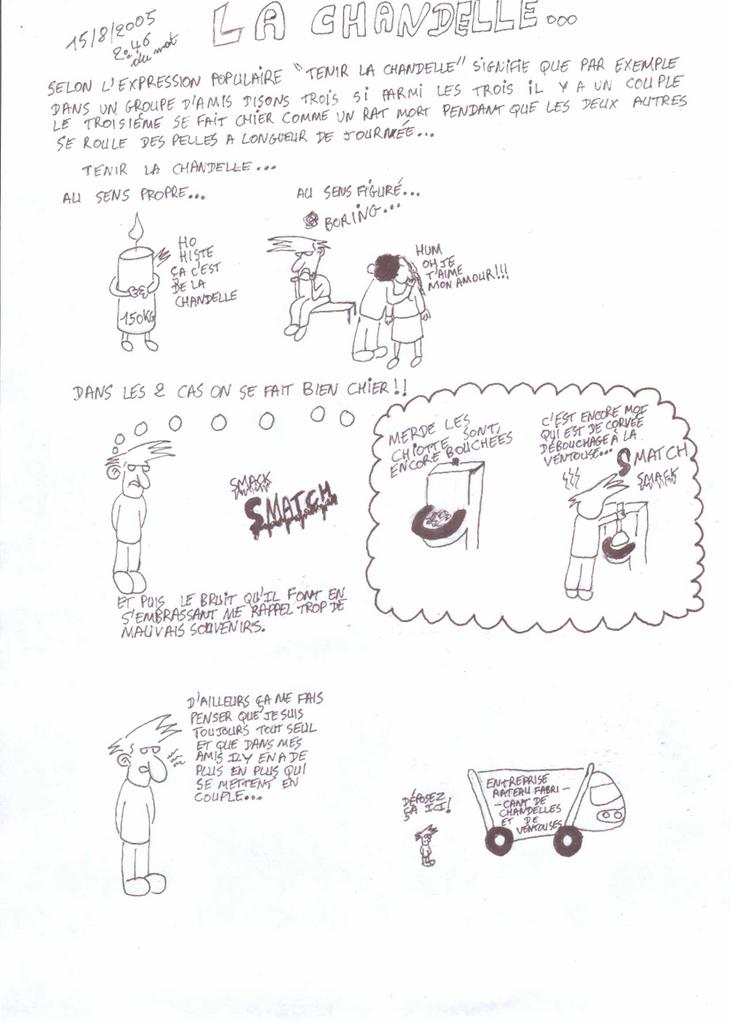 15/8/2005
2:46
du mat
LA CHANDELLE...
SELON L'EXPRESSION POPULAIRE "TENIR LA CHANDELLE" SIGNIFIE QUE PAR EXEMPLE
DANS UN GROUPE D'AMIS DISONS TROIS SI PARMI LES TROIS IL Y A UN COUPLE
LE TROISIEME SE FAIT CHIER COMME UN RAT MORT PENDANT QUE LES DEUX AUTRES
SE ROULE DES PELLES A LONGUEUR DE JOURNÉE...
TENIR LA CHANDELLE...
AU SENS PROPRE...
HO
HISTE
ÇA C'EST
DE LA
CHANDELLE
150KG
AU SENS FIGURÉ...
BORING...
HUM
OH JE
T'AIME
MON AMOUR!!!
DANS LES 2 CAS ON SE FAIT BIEN CHIER!!
SMACK
SMATCH
MERDE LES
CHIOTTE SONT
ENCORE BOUCHEES
C'EST ENCORE MOI
QUI EST DE CORVÉE
DÉBOUCHAGE À LA
VENTOUSE...
SMATCH
SMACK
ET PUIS LE BRUIT QU'IL FONT EN
S'EMBRASSANT ME RAPPEL TROP DE
MAUVAIS SOUVENIRS.
D'AILLEURS ÇA ME FAIS
PENSER QUE JE SUIS
TOUJOURS TOUT SEUL
ET QUE DANS MES
AMIS IL Y EN A DE
PLUS EN PLUS QUI
SE METTENT EN
COUPLE...
DÉPOSEZ
ÇA ICI!
ENTREPRISE
RATEAU FABRI-
-CANT DE
CHANDELLES
ET DE
VENTOUSES